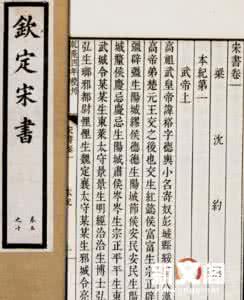 宋書卷一
梁沈約
本紀第一
武帝上
高祖武皇帝諱裕字德輿小名寄奴彭城縣綏
高帝弟楚元王交之後也交生紅懿侯富富生宗
彊辟彊生陽城繆侯德德生陽城節侯安民安民生
城釐侯慶忌慶忌生陽城肅侯岑岑生宗正平平生東
武城令某某生東萊太守景景生明經洽洽生博士
弘生瑯邪都尉悝悝生魏定襄太守某某生邪城令亮
乾隆四年校刊
宋書卷一
本紀
欽定宋書
卷五之十